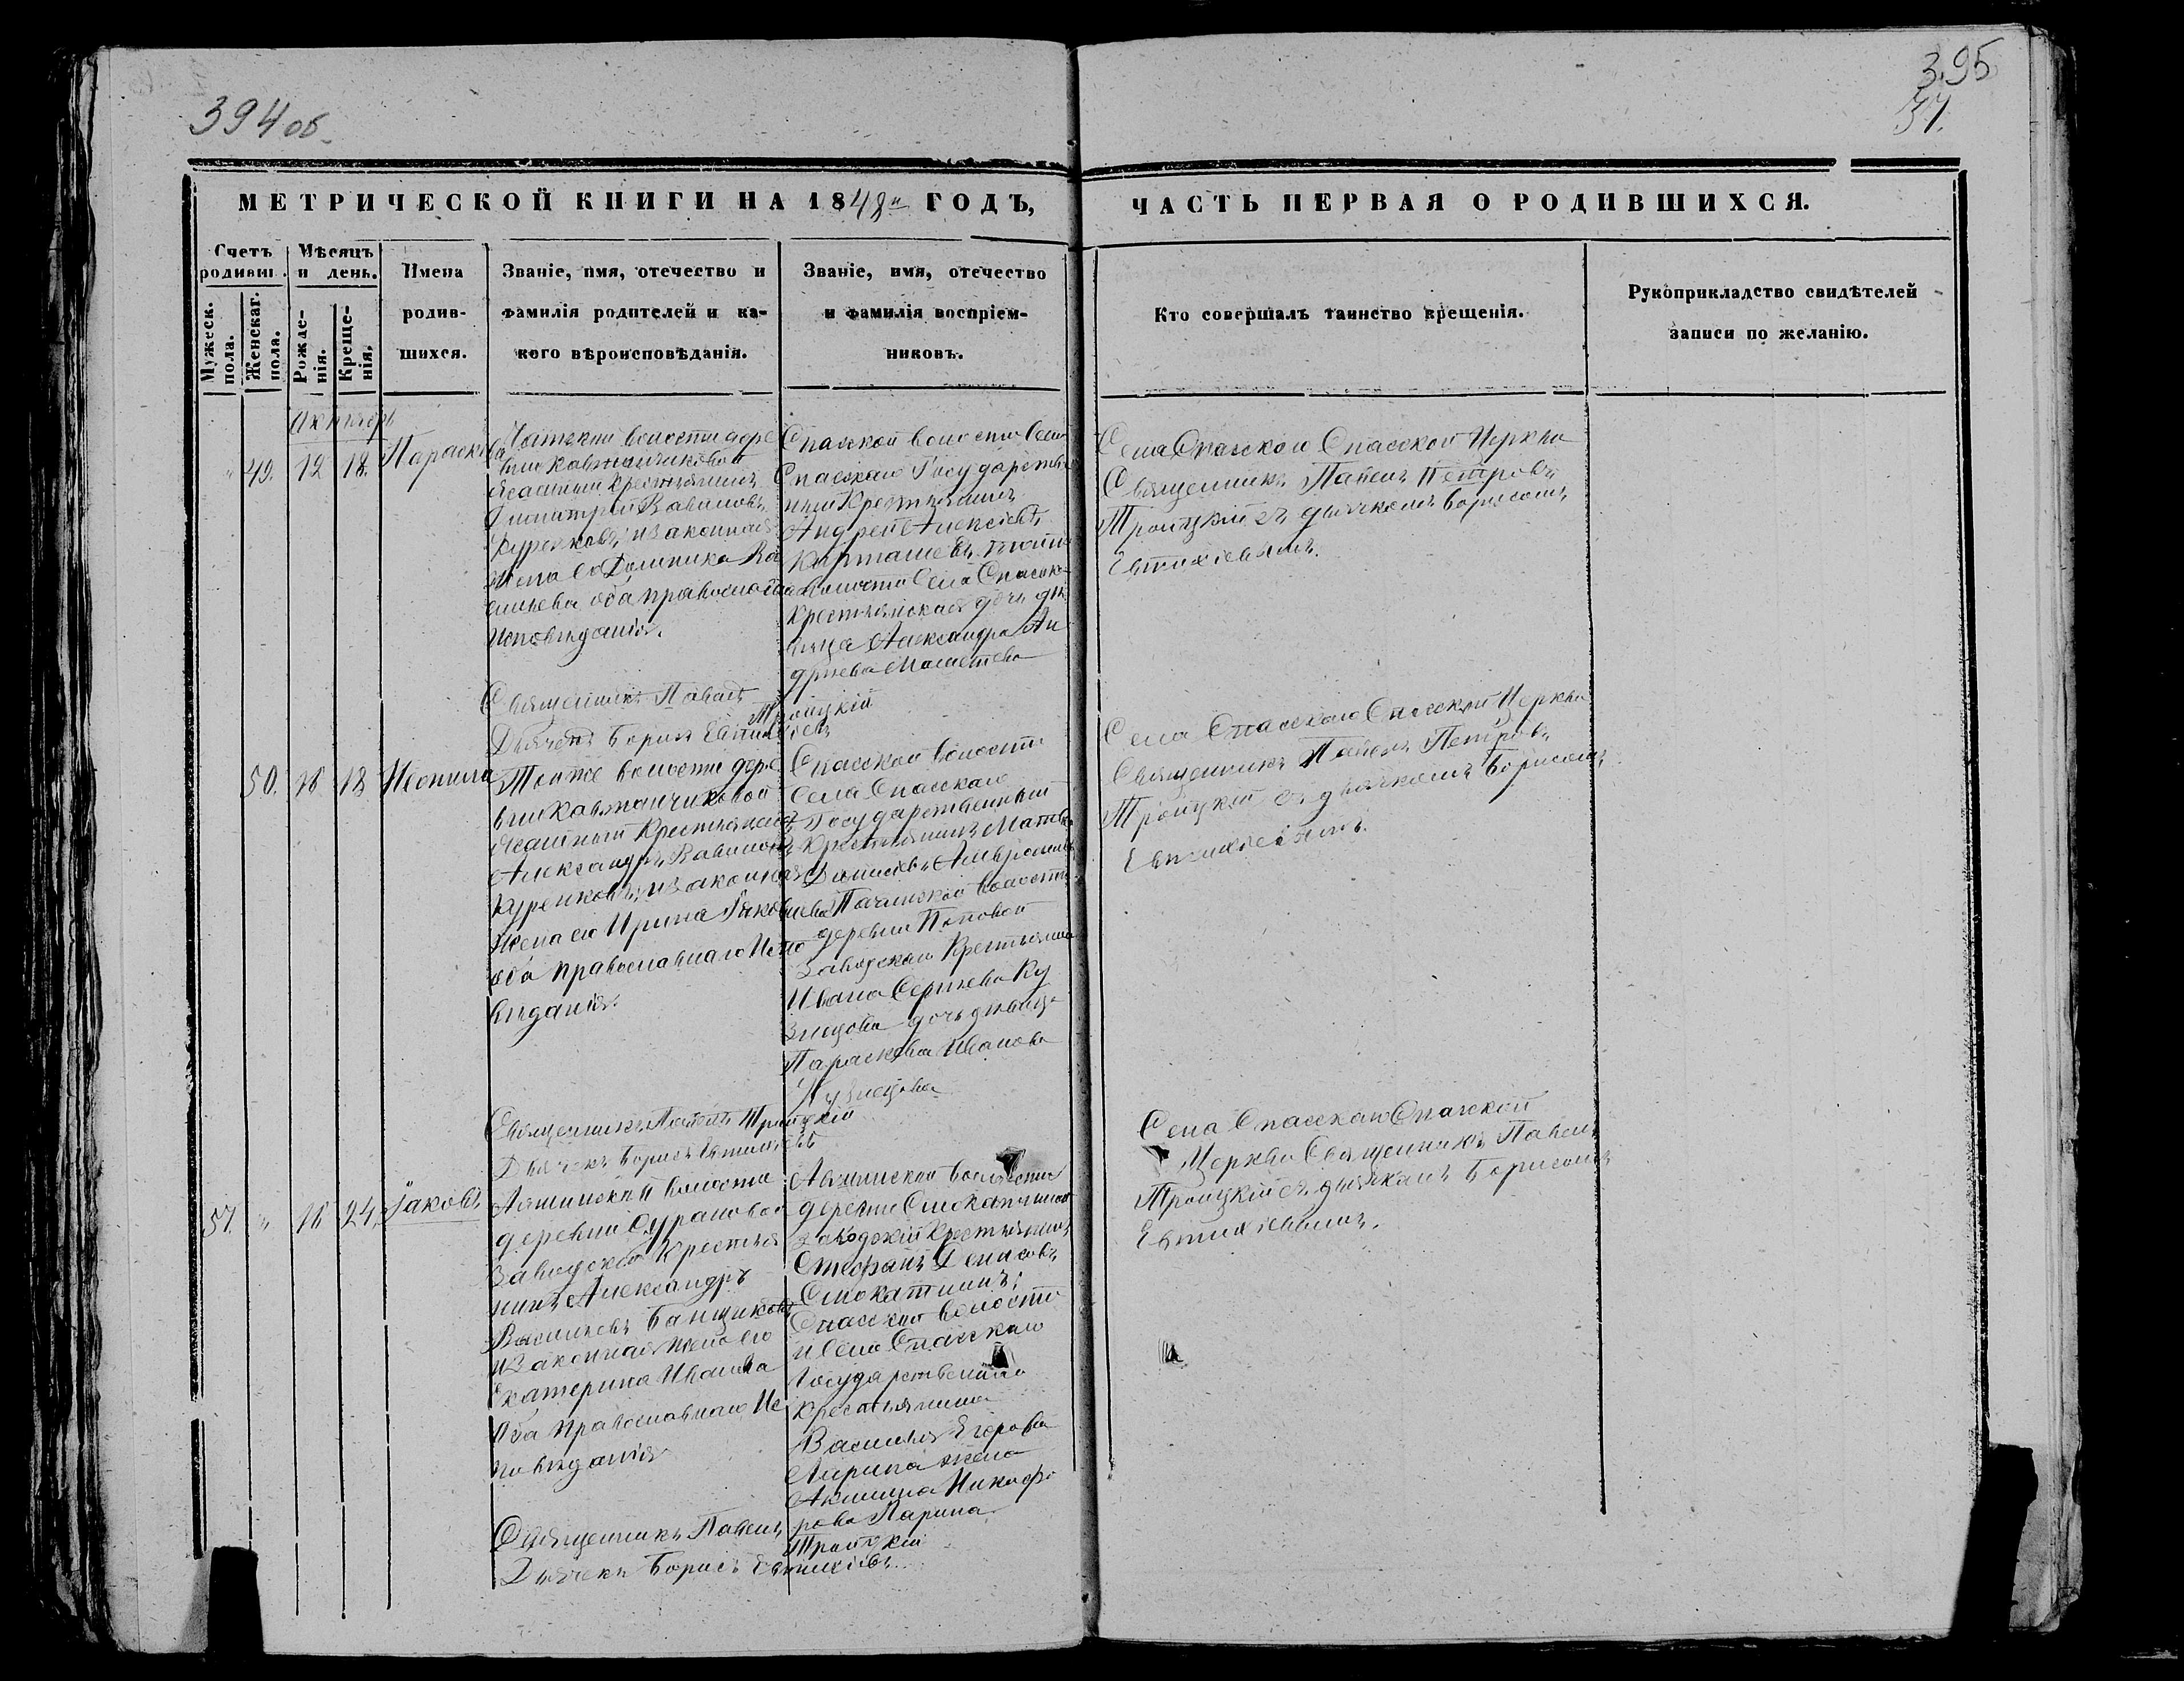 394 об.
3.95
37.
МЕТРИЧЕСКОЙ КНИГИ НА 1848й ГОДЪ,
ЧАСТЬ ПЕРВАЯ О РОДИВШИХСЯ.
Счетъ родивш.
Мужеск. пола.
Женскаг. пола.
Мѣсяцъ и день.
Рожде-
нія.
Креще-
нія.
Имена
родив-
шихся.
Званіе, имя, отечество и
фамилія родителей и ка-
кого вѣроисповѣданія.
Званіе, имя, отечество
и фамилія воспріем-
никовъ.
Кто совершалъ таинство крещенія.
Рукоприкладство свидѣтелей
записи по желанію.
Октябрь
" 49. 12 18. Параскева
волости дере
вни Кавтанчиковой
Ясашный Крестьянинъ
Димитрій Вавиловъ
Куренковъ, и законная
Жена его Домника Ва
сильева оба православнаго
Исповѣданія.
Спасской волости Села
Спаскаго Государствен
ный Крестьянинъ
Андрей Алексѣевъ
Карташевъ, тойже
волости Села Спаска
Крестьянская дочь дѣ
вица Александра Ан
дреева
Села Спаскаго Спасской Церкви
Священникъ Павелъ Петровъ
Троицкій съ дьячкомъ Борисомъ
Евтихіевымъ.
Священникъ Павелъ Троицкій
Дьячекъ Борисъ Евтихіевъ
50. 16 18 Неонила
Тойже волости дере
вни Кавтанчиковой
Ясашный Крестьянинъ
Александръ Вавиловъ
Куренковъ, и законная
Жена его Ирина Яковлева
оба православнаго Испо
вѣданія.
Спасской волости
Села Спасскаго
Государственный
Крестьянинъ Матвей
волости
деревни Поповой
Заводскаго Крестьянина
Ивана Сергеева Ку
знецова дочь дѣвица
Параскева Иванова
Кузнецова
Села Спасскаго Спасской Церкви
Священникъ Павелъ Петровъ
Троицкій съ дьячкомъ Борисомъ
Евтихіевымъ.
Священникъ Павелъ Троицкій
Дьячекъ Борисъ Евтихіевъ
57. " 18 24. Іаковъ
волости
деревни Сурановой
Заводской Крестья
нинъ Александръ
Васильевъ Банщиковъ
и Законная жена его
Екатерина Иванова
Оба Православнаго Ис
повѣданія
волости
деревни
заводскій Крестьянинъ
Стефанъ Денисовъ
Смокатнинъ;
Спасской волости
и Села Спасскаго
Государственнаго
Крестьянина
Василья Егорова
Ларина жена
Акилина Никифо
рова Ларина.
Села Спасскаго Спасской
Церкви Священникъ Павелъ
Троицкій съ дьячкомъ Борисомъ
Евтихіевымъ.
Священникъ Павелъ Троицкій
Дьячекъ Борисъ Евтихіевъ.